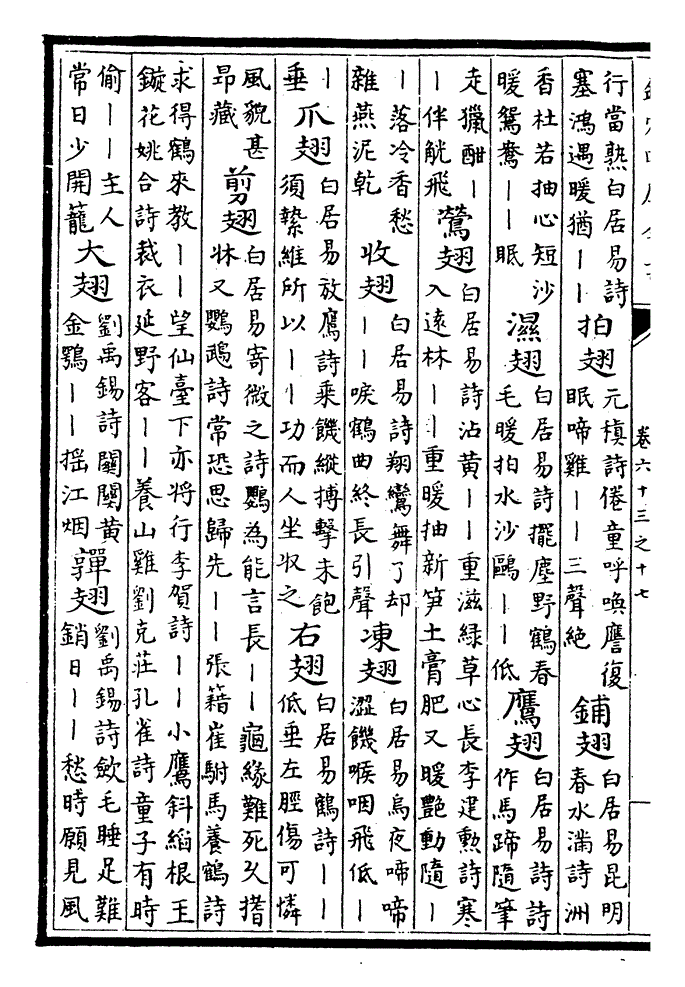 卷六十三之十七
行當熟白居易詩塞鴻遇暖猶丨丨 拍翅 元稹詩倦童呼喚譍復眠啼雞丨丨三聲絶 鋪翅 白居易昆明春水滿詩洲
香杜若抽心短沙暖鴛鴦丨丨眠 濕翅 白居易詩擺塵野鶴春毛暖拍水沙鷗丨丨低 鷹翅 白居易詩詩作馬蹄隨筆
走獵酣丨丨伴觥飛 鶯翅 白居易詩沾黄丨丨重滋緑草心長李建勲詩寒入遠林丨丨重暖抽新笋土膏肥又暖艷動隨丨
丨落冷香愁雜燕泥乾 收翅 白居易詩翔鸞舞了却丨丨唳鶴曲終長引聲 凍翅 白居易烏夜啼啼澀饑喉咽飛低丨
丨垂 爪翅 白居易放鷹詩乗饑縱搏擊未飽須縶維所以丨丨功而人坐收之 右翅 白居易鶴詩丨丨低垂左脛傷可憐
風貌甚昂藏 剪翅 白居易寄微之詩鸚為能言長丨丨龜緣難死久搘牀又鸚鵡詩常恐思歸先丨丨張籍崔駙馬養鶴詩
求得鶴來教丨丨望仙臺下亦將行李賀詩丨丨小鷹斜縚根玉鏇花姚合詩裁衣延野客丨丨養山雞劉克莊孔雀詩童子有時
偷丨丨主人常日少開籠 大翅 劉禹錫詩闗闗黄金鶚丨丨揺江烟 嚲翅 劉禹錫詩歛毛睡足難銷日丨丨愁時願見風